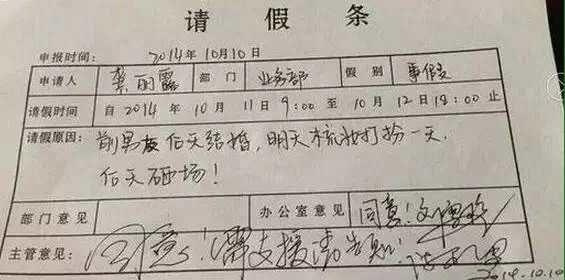 请假条
申报时间： 2014年10月10日
申请人 龚丽露 部门 业务部 假别 事假
请假时间 自2014年10月11日9:00至10月12日18:00止
请假原因： 前男友后天结婚，明天梳妆打扮一天。
后天砸场！
部门意见 办公室意见 同意！
主管意见： 同意！需支援请告知！
2014.10.10